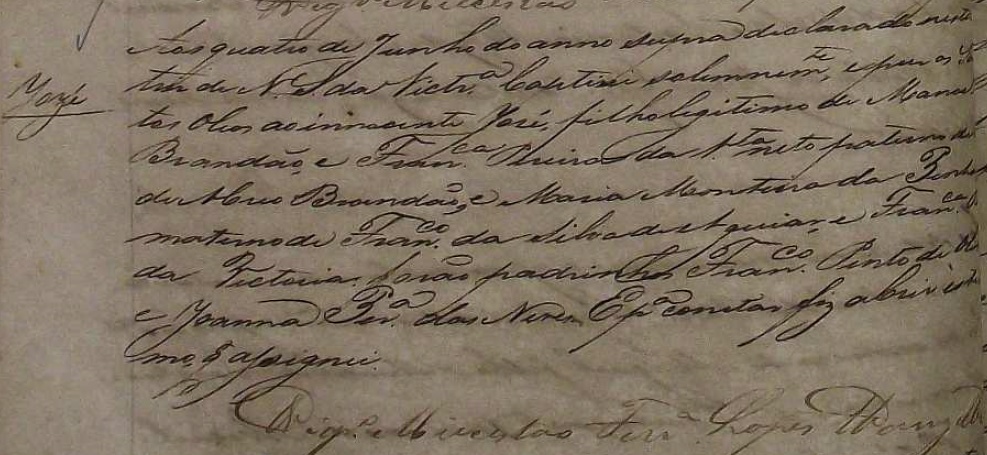 Vigr.º Millessas
Jozé
Aos quatro de Junho do anno supra declarado nesta
triz de N. S. da Victr.ª baptizei solemnem.te, e puz os S.
tos Oleos ao innocente José, filho legitimo de Manoel
Brandão, e Fran.ca Pereira da S.ta neto paterno de
de Abreu Brandão, e Maria Monteiro da Penha
materno de Fran.co da Silva de Aguiar, e Fran.ca
da Victoria. forão padrinhos Fran.co Pinto de
e Joanna Per.ª das Neves. E p.ª constar fiz abrir este
mo, q assignei.
Vigr.º Ferr.ª Lopes